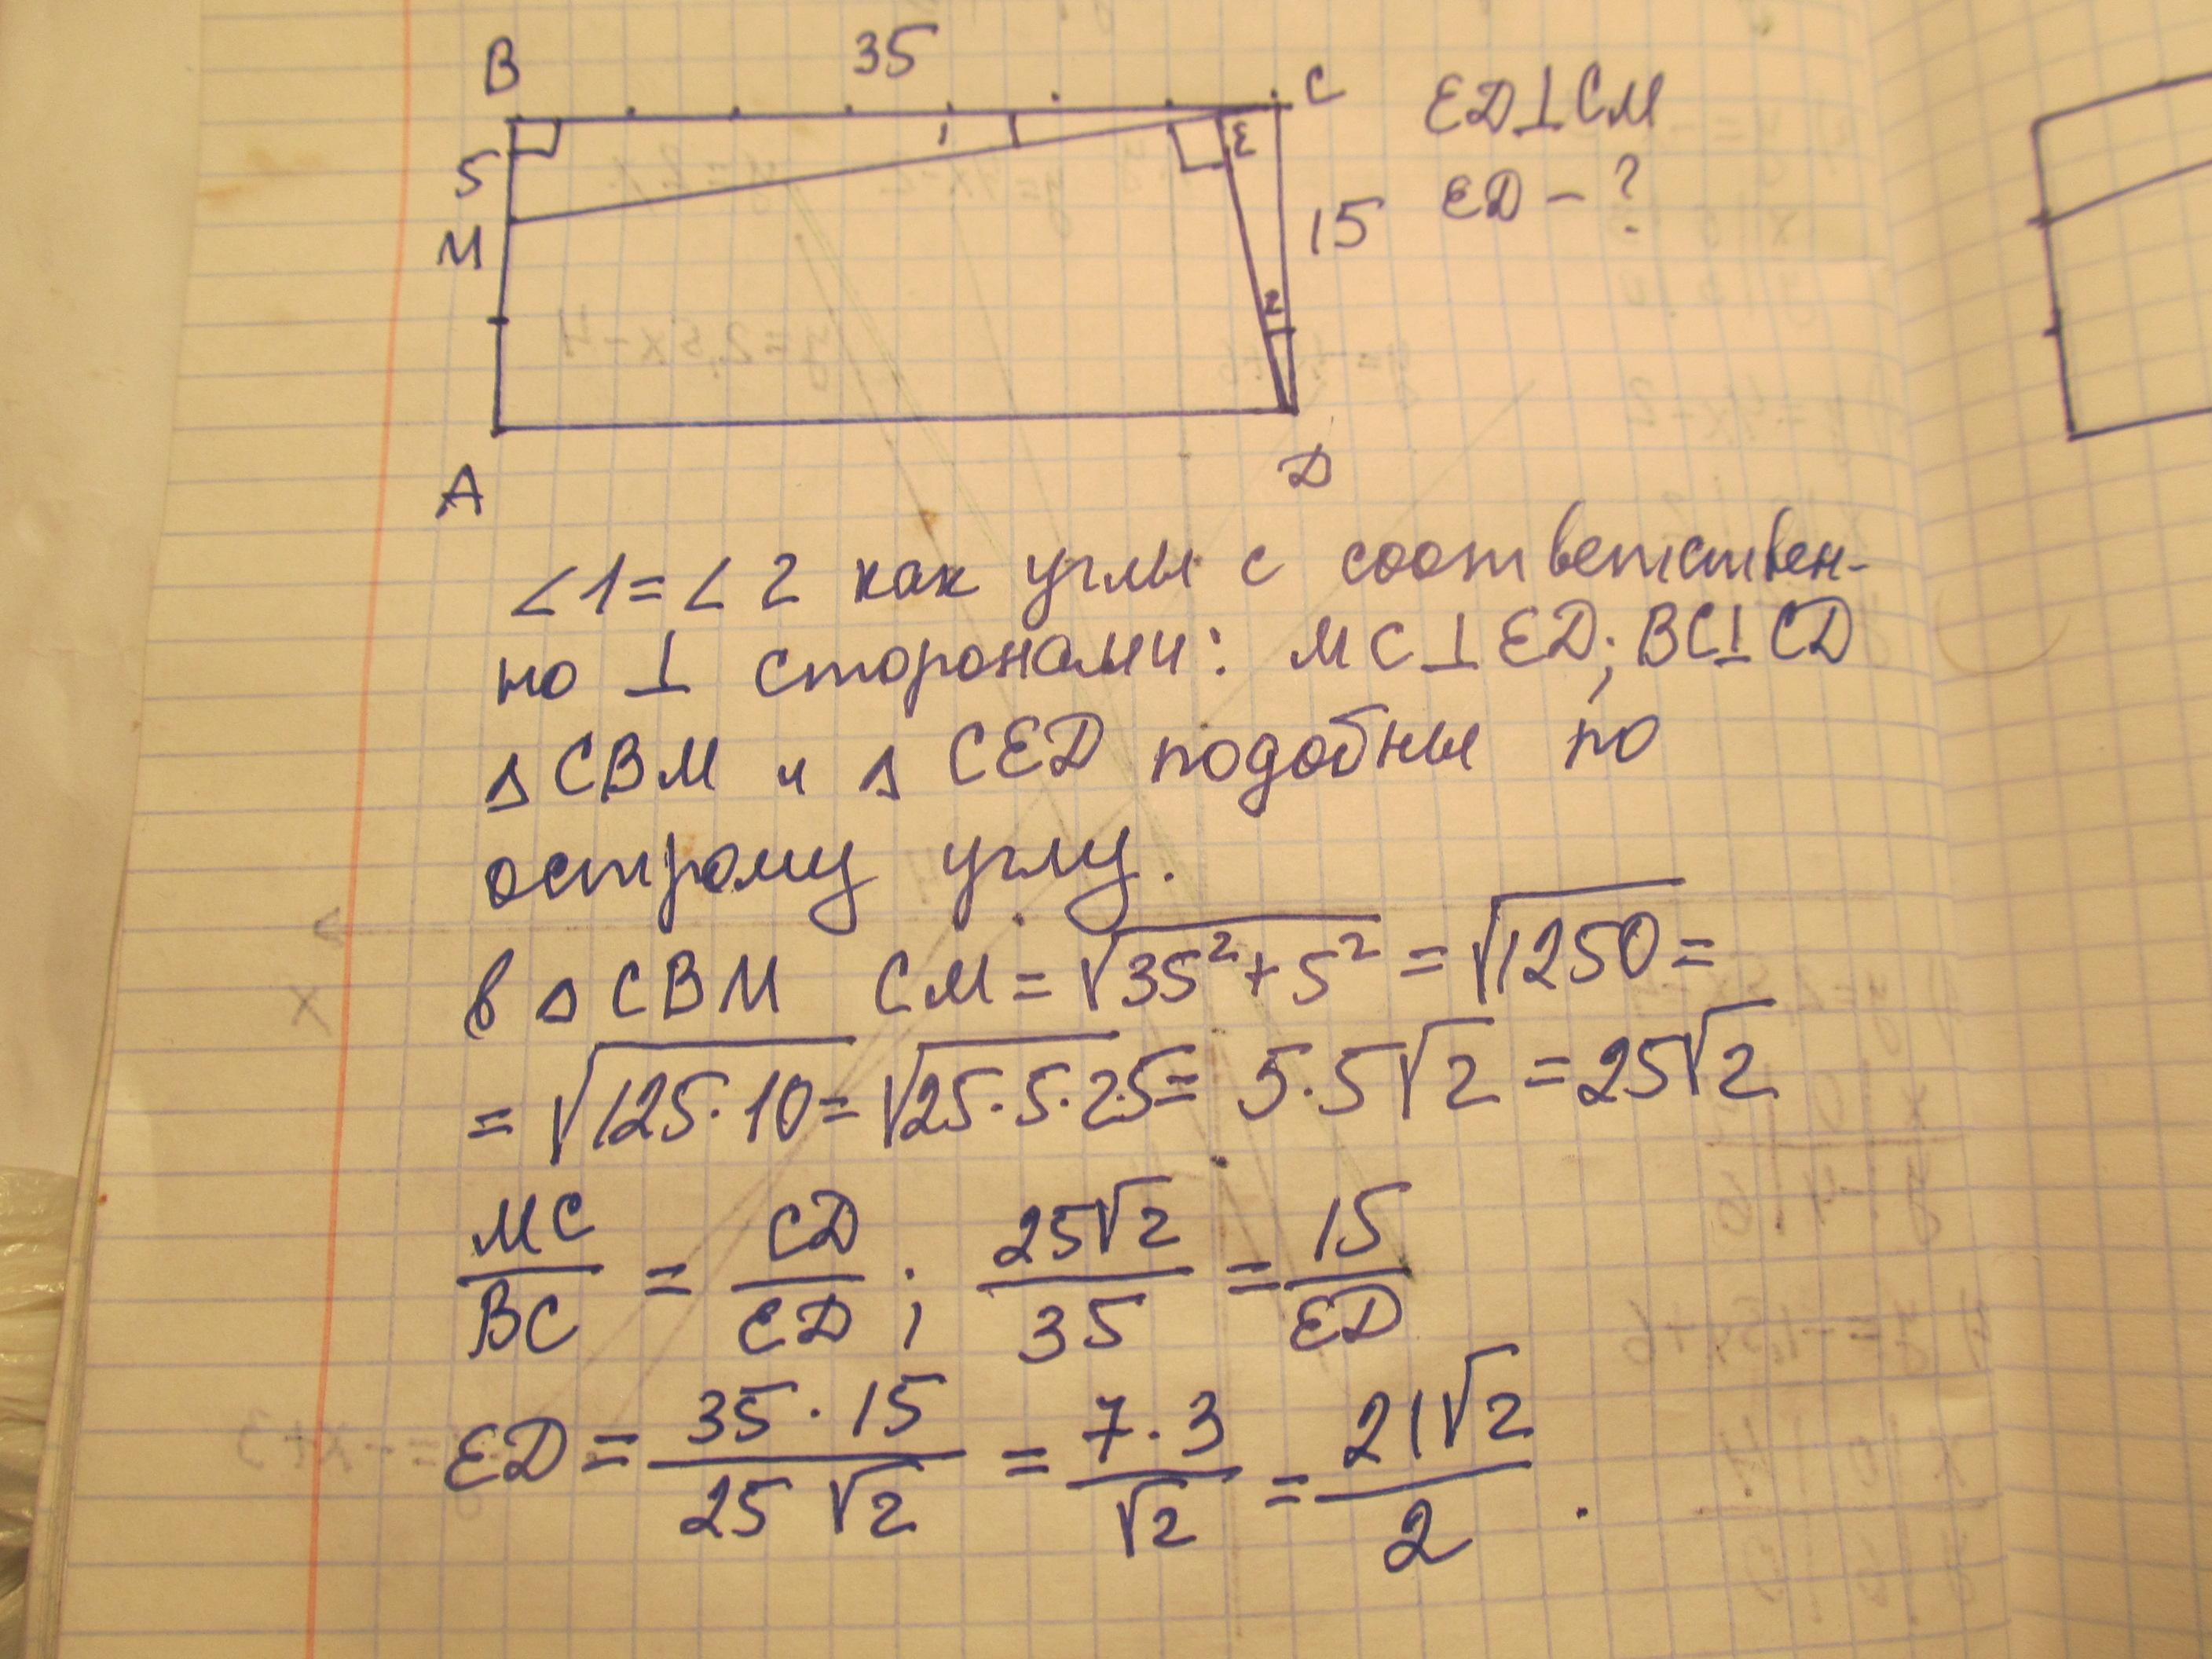 B 35 C
ED⊥CM
5
M
1
E
ED – ?
15
2
A D
<1=<2 как углы с соответствен-
но ⊥ сторонами: MC⊥ED; BC⊥CD
Δ CBM и Δ CED подобны по
острому углу.
В Δ CBM CM = √(35² + 5²) = √1250 =
= √(125·10) = √(25·5·2·5) = 5·5√2 = 25√2
MC/BC = CD/ED ; 25√2/35 = 15/ED
ED = 35·15/25√2 = 7·3/√2 = 21√2/2 .